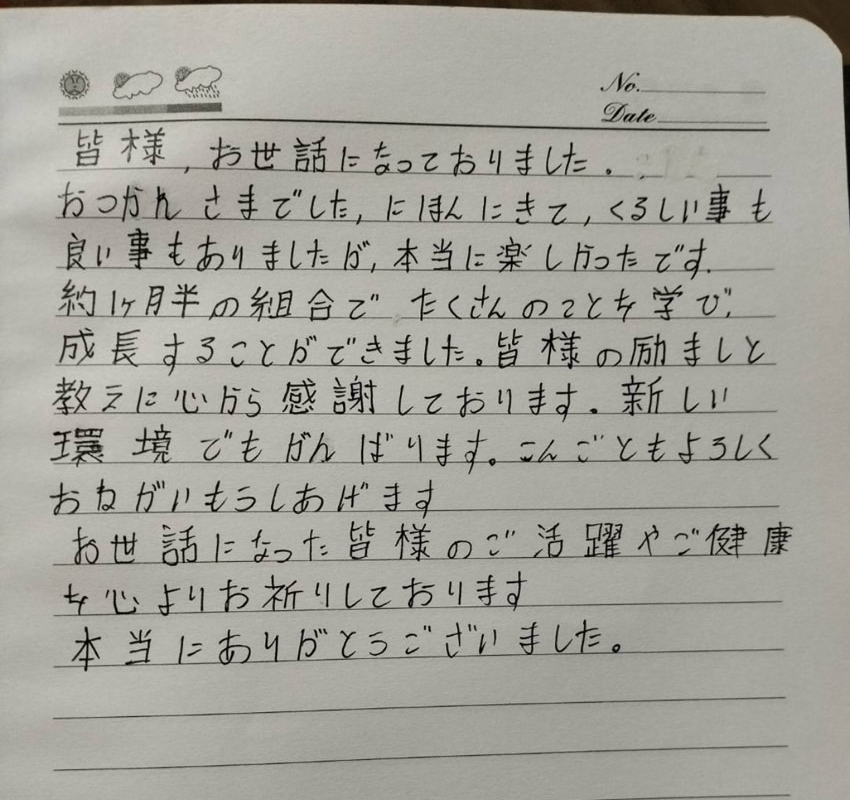 No.
Date
皆様,お世話になっておりました.
おつかれさまでした,にほんにきて,くるしい事も
良い事もありましたが,本当に楽しかったです.
約1ヶ月半の組合でたくさんのことを学び,
成長することができました。皆様の励ましと
教えに心から感謝しております.新しい
環境でもがんばります。こんごともよろしく
おねがいもうしあげます
お世話になった皆様のご活躍やご健康
を心よりお祈りしております
本当にありがとうございました。